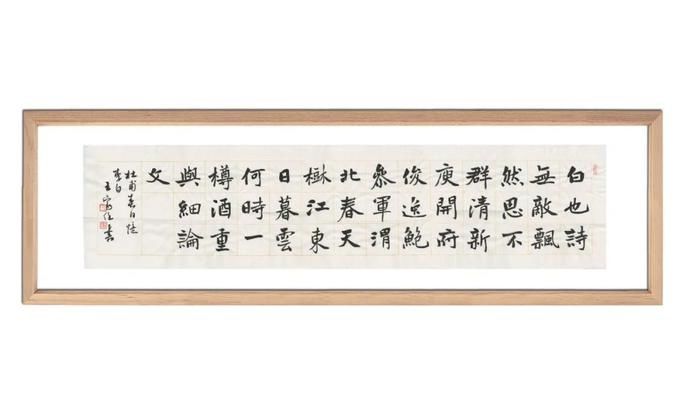 白也詩
無敵飄
然思不
群清新
庾開府
俊逸鮑
叅軍渭
北春天
樹江東
日暮雲
何時一
樽酒重
與細論
文
杜甫春日憶
李白
王書